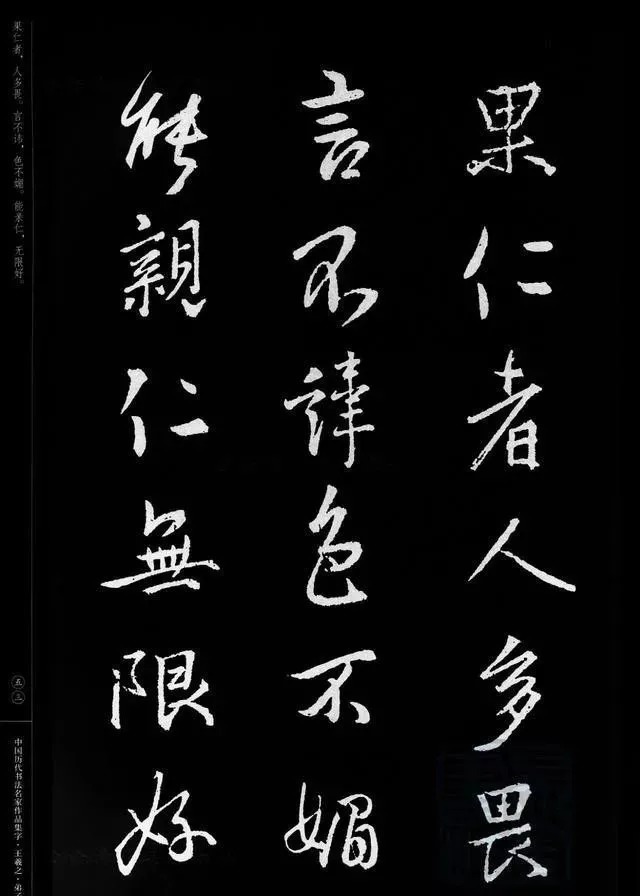 果仁者人多畏
言不諱色不媚
能親仁無限好
果仁者，人多畏。言不讳，色不媚。能亲仁，无限好。
五三
中国历代书法名家作品集字·王羲之·弟